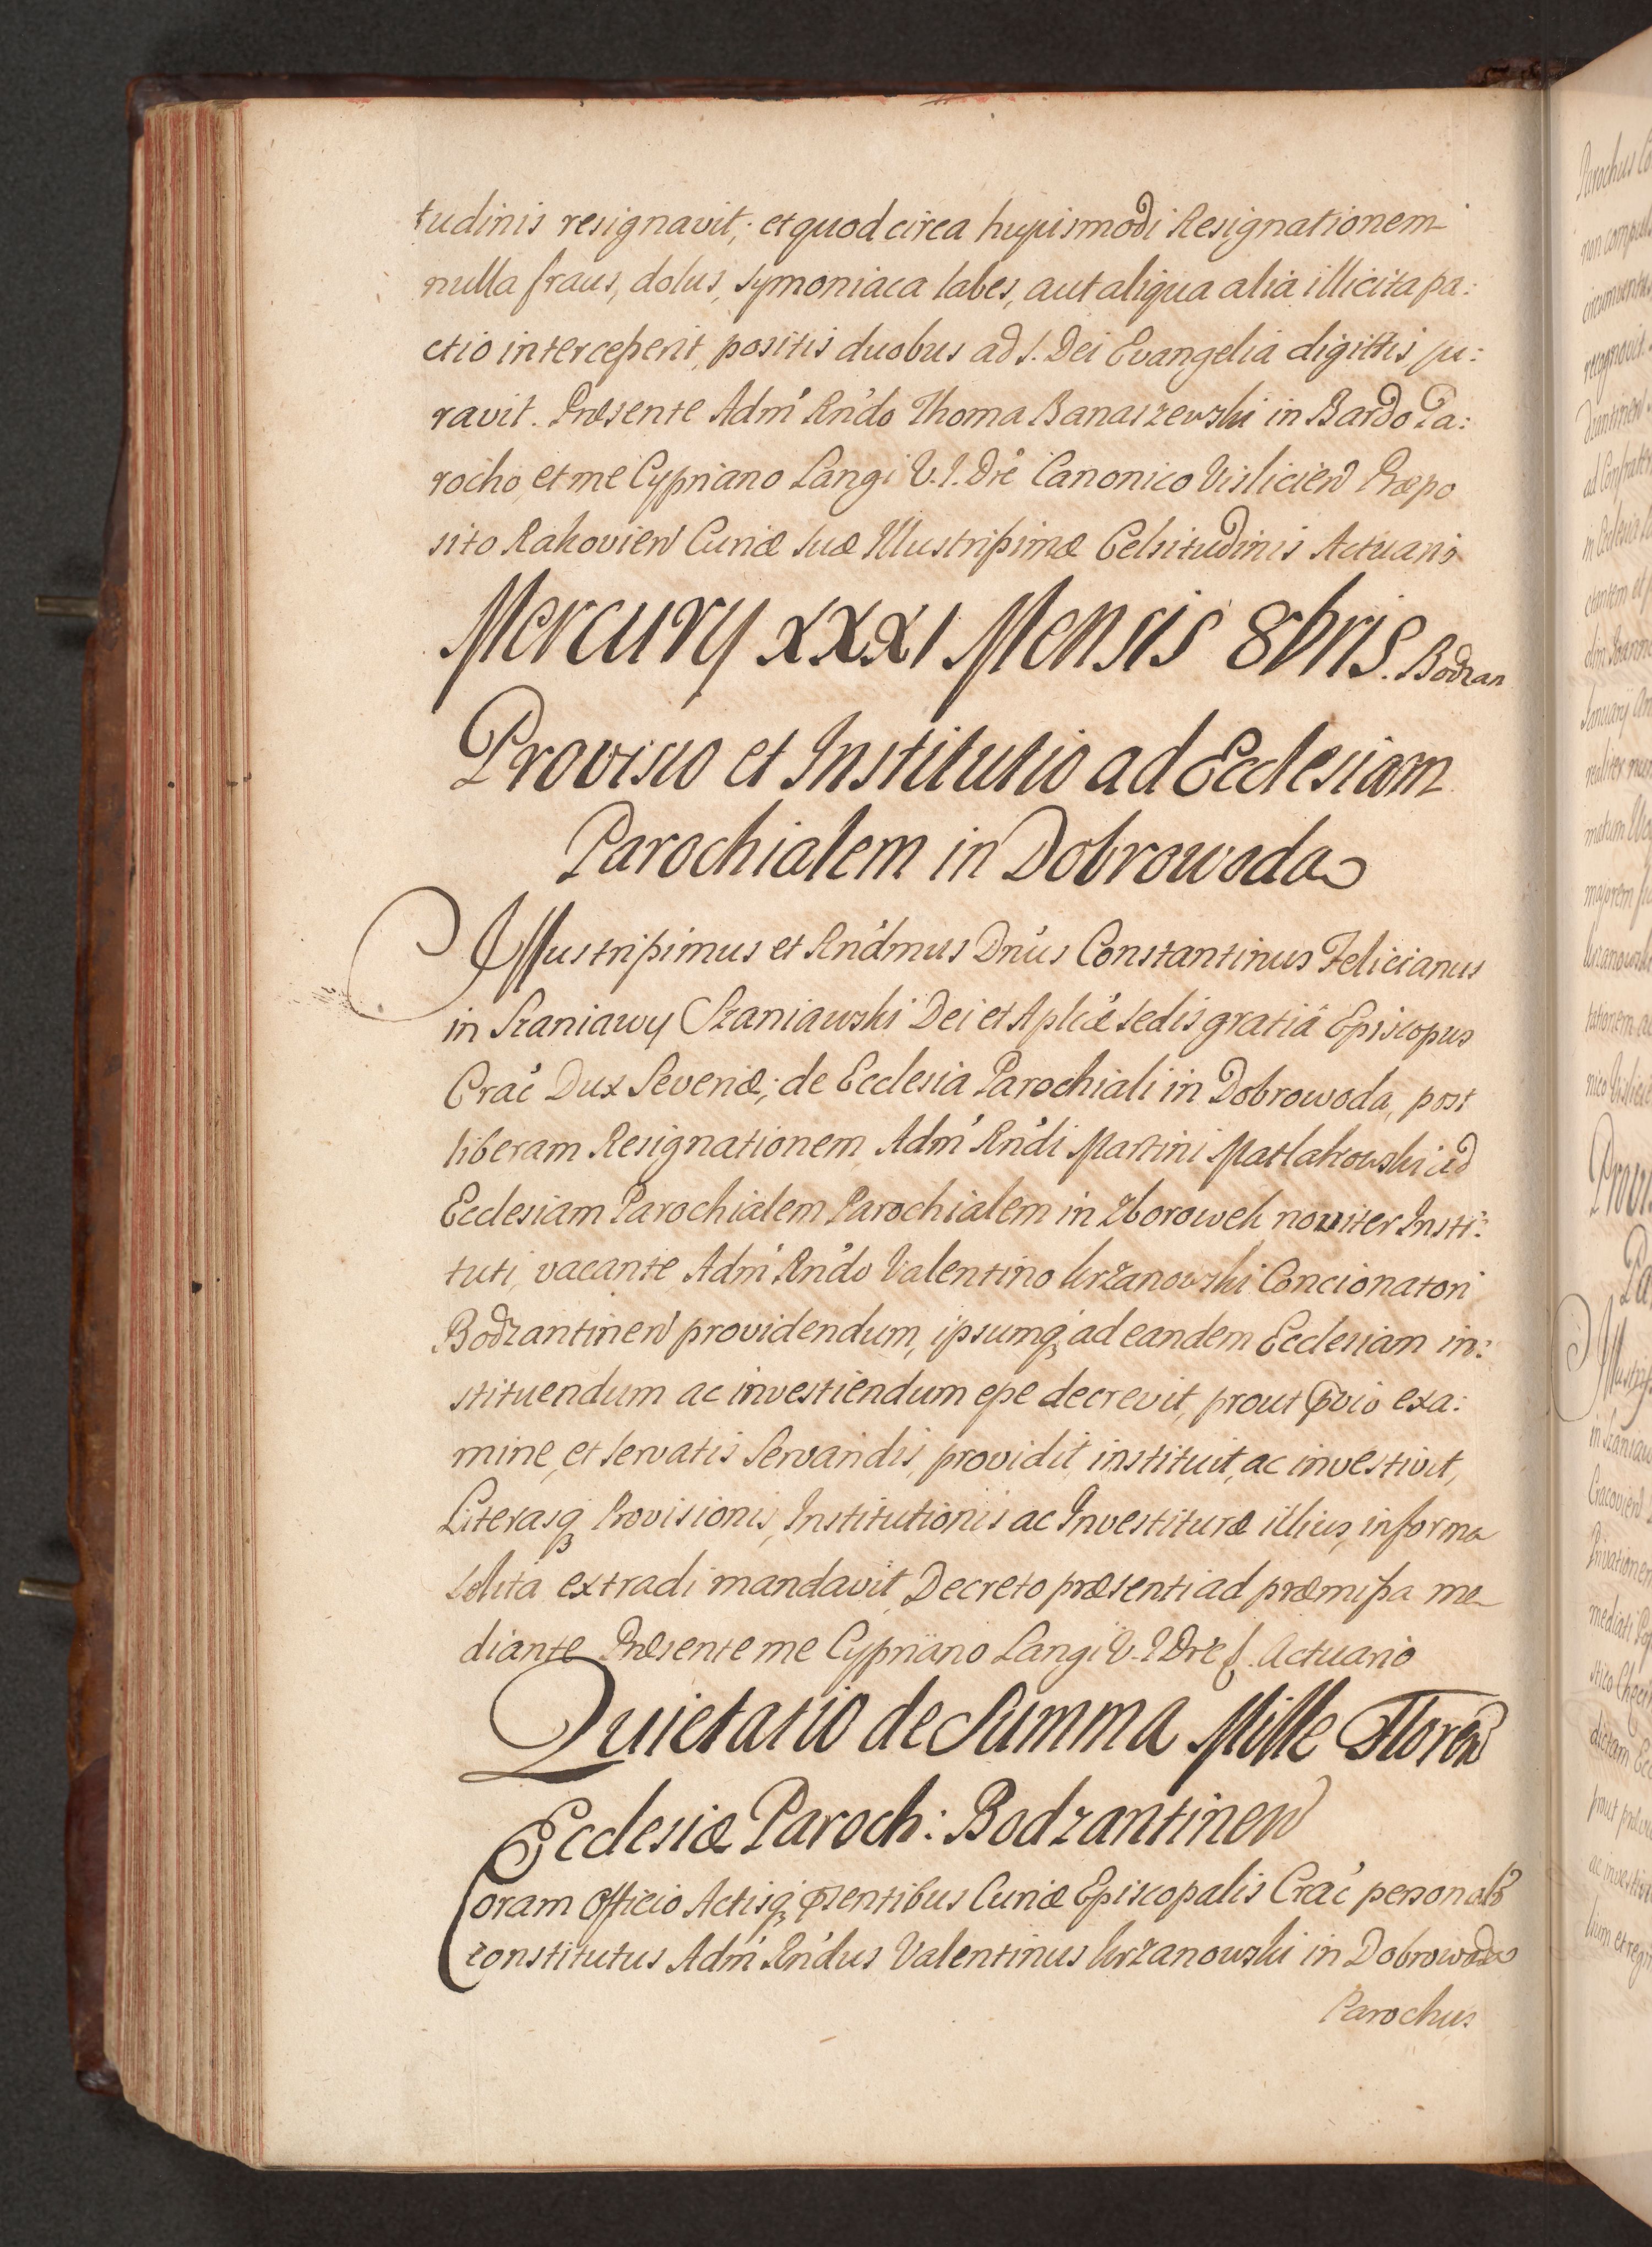 tudinis resignavit; et quod circa hujusmodi Resignationem
nulla fraus, dolus, symoniaca labes, aut aliqua alia illicita pa:
ctio interceßerit, positis duobus ad S. Dei Evangelia digittis ju:
ravit. Præsente Adm̃ Rńdo Thoma Banaszewski in Bardo Pa:
rocho, et me Cypriano Langi V. I. Dré Canonico Visliciën Præpo
sito Rakovien Curiæ Suæ Illustrißimæ Celsitudinis Actuario
Mercury XXXI Mensis 8bris. Bodzan
Provisio et Institutio ad Ecclesiam
Parochialem in Dobrowoda
Illustrißimus et Rńdmus Dńus Constantinus Felicianus
in Szaniawy Szaniawski Dei et Aplicæ Sedis gratiâ Episcopus
Crac̃ Dux Severiæ; de Ecclesia Parochiali in Dobrowoda, post
liberam Resignationem Adm̃ Rńdi Martini Matlakowski ad
Ecclesiam Parochialem Parochialem in Zborowek noviter Insti:
tuti, vacante Adm̃ Rńdo Valentino Krzanowski Concionatori
Bodzantinen providendum, ipsumq3 ad eandem Ecclesiam in:
stituendum ac investiendum eße decrevit, prout p̃vio exa:
mine, et servatis Servandis, providit, instituit, ac investivit,
Literasq3 Provisionis, Institutionis ac Investituræ illius, in forma
solita extradi mandavit, Decreto præsenti ad præmißa me
diante. Præsente me Cypriano Langi V. I. Dre &. Actuario
Quietatio de Summa Mille Floren
Ecclesiæ Paroch: Bodzantinen
Coram Officio Actisq3 p̃sentibus Curiæ Episcopalis Crac̃ personalr̃
constitutus Adm̃ Rńdus Valentinus Krzanowski in Dobrowoda
Parochus